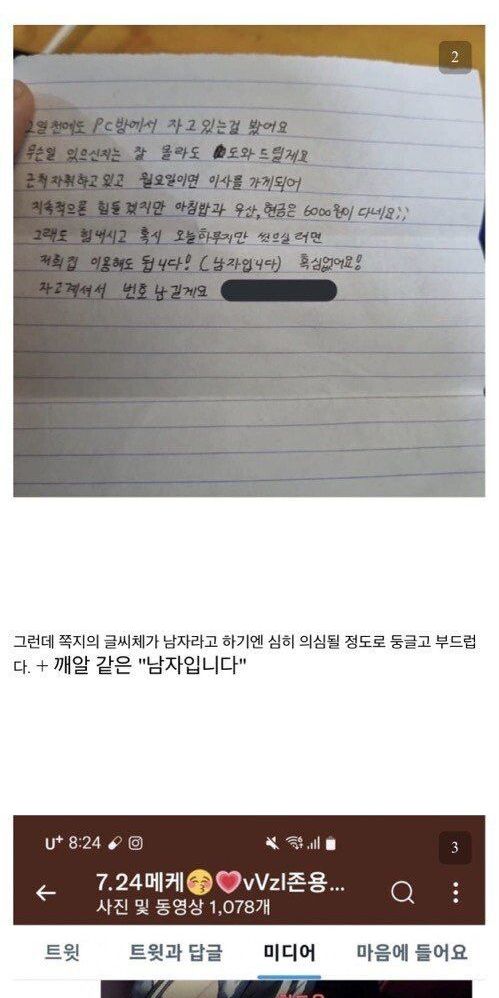 2
2일전에도 PC방에서 자고 있는걸 봤어요
무슨일 있으신지는 잘 몰라도 도와드릴게요
근처 자취하고 있고 월요일이면 이사를 가게되어
지속적으론 힘들겠지만 아침밥과 우산, 현금은 6000원이 다네요;;
그래도 힘내시고 혹시 오늘하루지만 씻으실려면
저희집 이용해도 됩니다! (남자입니다) 흑심없어요!
자고계셔서 번호 남길게요
그런데 쪽지의 글씨체가 남자라고 하기엔 심히 의심될 정도로 둥글고 부드럽
다. + 깨알 같은 "남자입니다"
U+ 8:24
3
7.24메케😚💗vVzl존용...
사진 및 동영상 1,078개
트윗 트윗과 답글 미디어 마음에 들어요